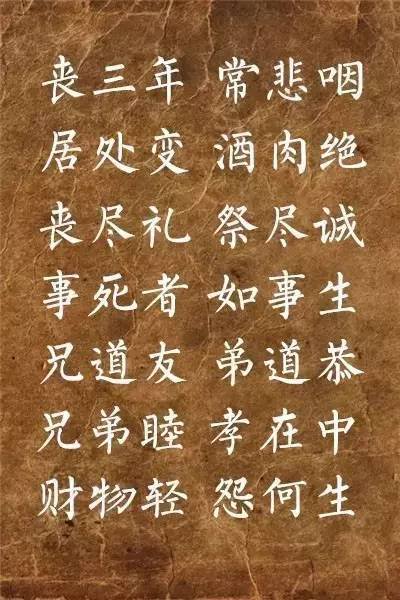 丧三年 常悲咽
居处变 酒肉绝
丧尽礼 祭尽诚
事死者 如事生
兄道友 弟道恭
兄弟睦 孝在中
财物轻 怨何生